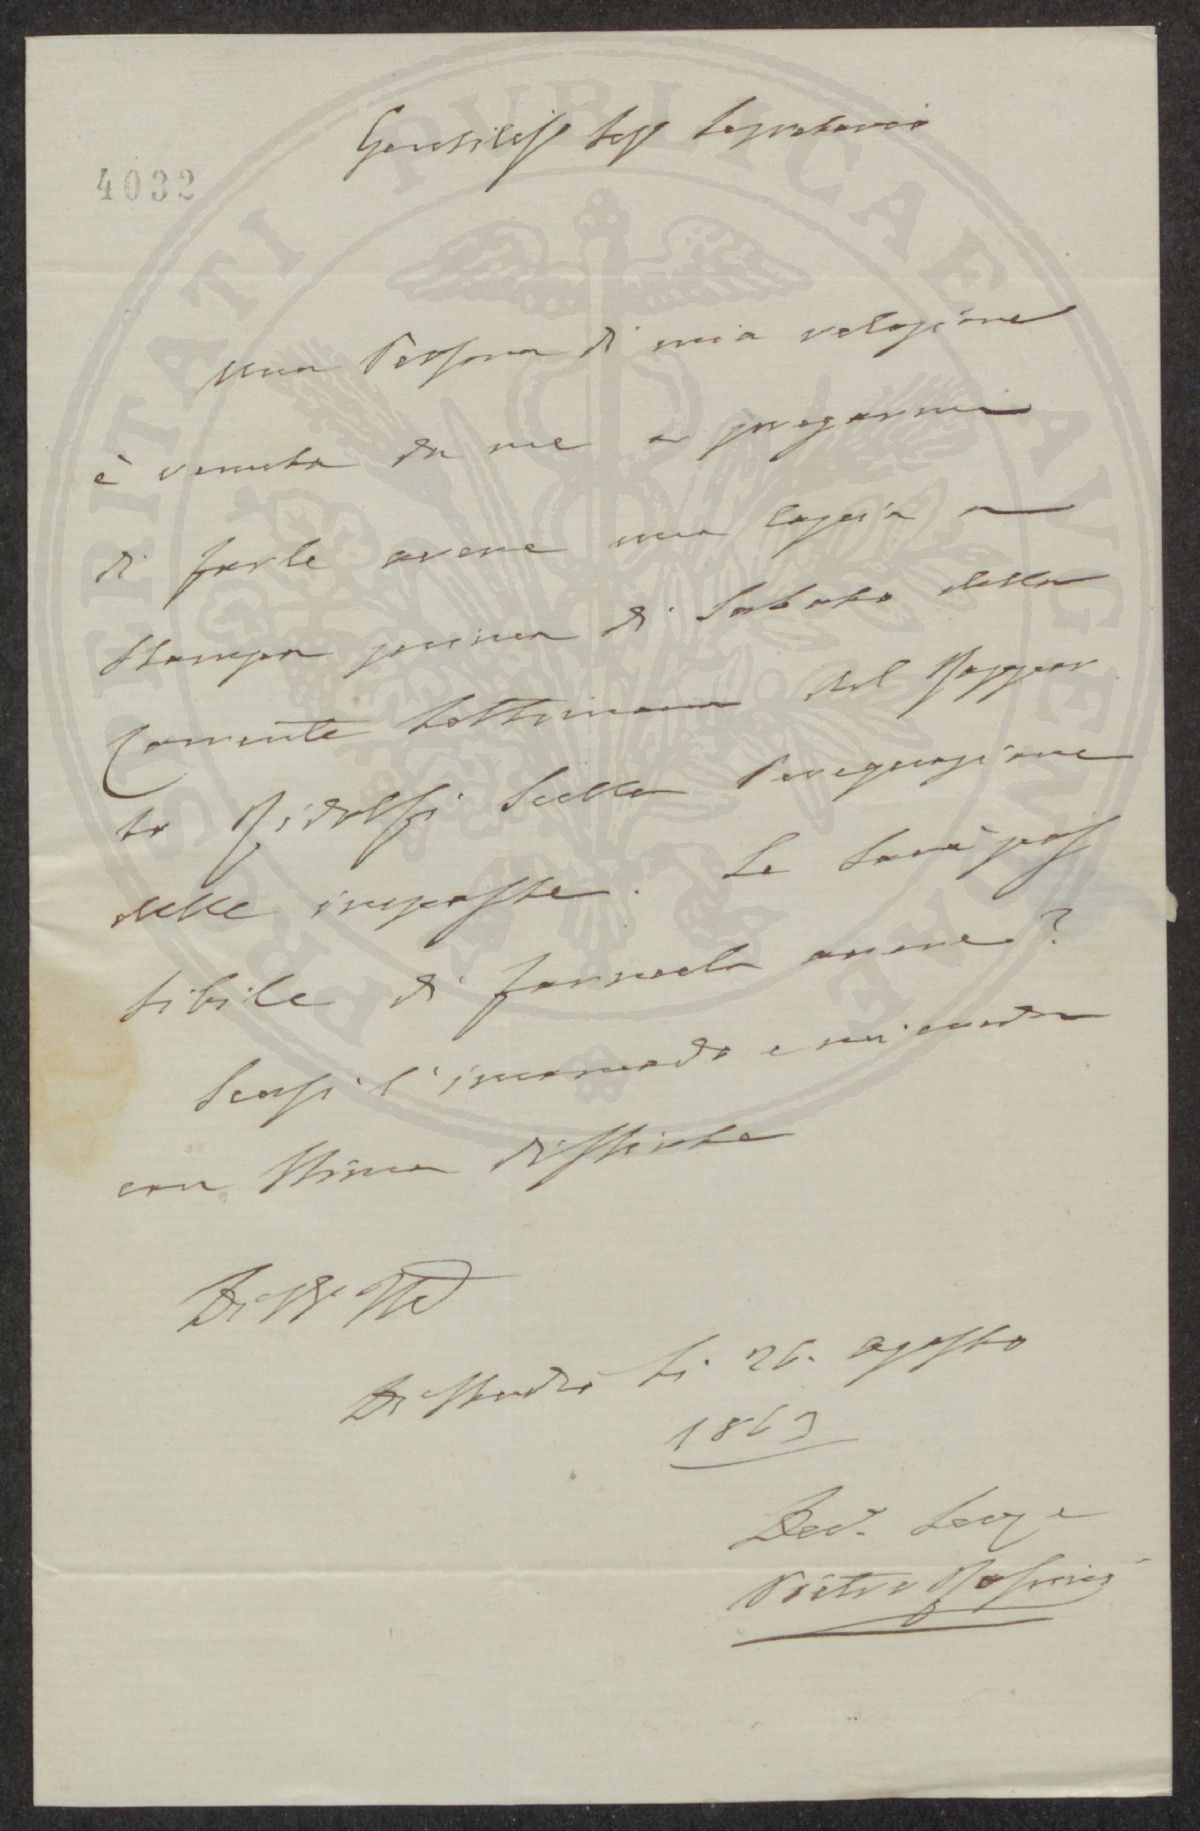 Gentiliss Sigr Segretario
4032
una Persona di mia relazione
è venuta da me a pregarmi
di farle avere una copia a
Stampa prima di Sabato della
Corrente Settimana del Rappor
to Ridolfi Sulla Perequazione
delle imposte. Le Sarà pos
sibile di farmela avere?
Scusi l'incomodo e mi creda
con Stima distinta
Di
Di Studio li 26. agosto
1863
Dev. Servo
Pietro
PROSPERITATI PVBLICAE AVGENDAE